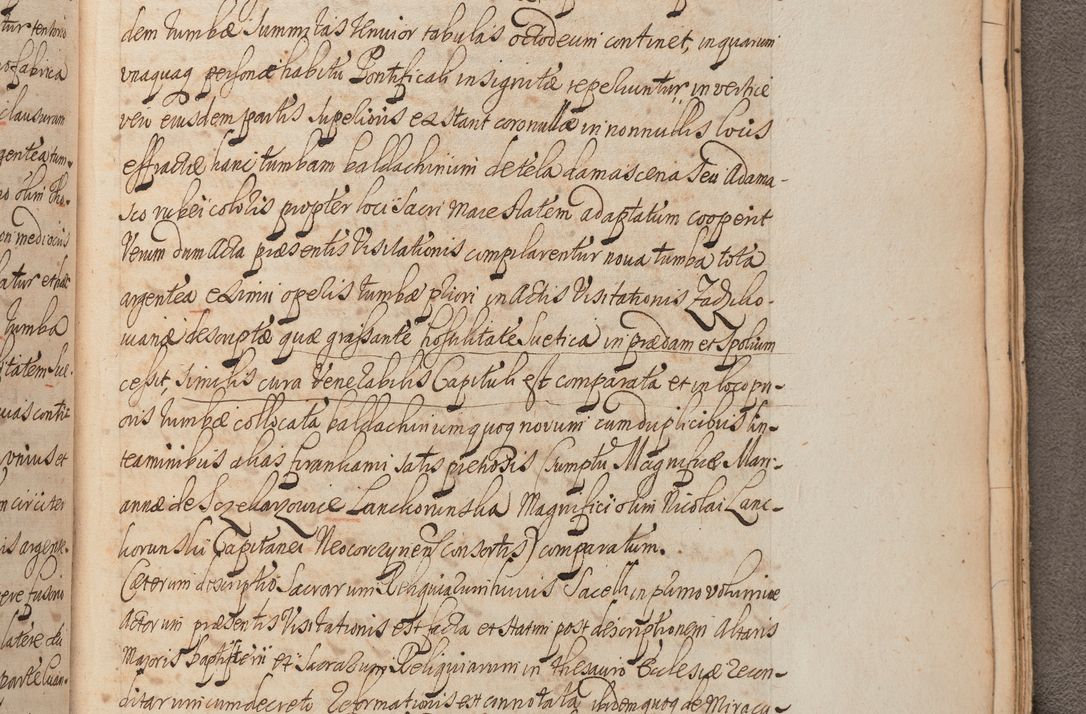 tur tentorio
fabrica
clausurum
argentea tum-
olim
mediocris
atur et
tumba
vnius et
circiter
is argent-
latere
parte
dem tumbæ summitas tenuior tabulas octodecim continet, in quarum
vnaquaq personæ habitu Pontificali insignitæ reperiuntur, in vertice
vero eiusdem partis superioris exstant coronullæ in nonnullis locis
effractæ hanc tumbam baldachinum de tela damascena seu Adama-
sco rubei coloris propter loci sacri maiestatem adaptatum cooperit
Verum dum Acta præsentis Visitationis compilarentur noua tumba tota
argentea eximii operis tumbæ priori in Actis Visitationis Zadziko-
uianæ descriptæ quæ grassante hostilitate Suetica in prædam et spolium
cessit, similis cura Venerabilis Capituli est comparata et in loco pri-
oris tumbæ collocata baldachinum quoq nouum cum duplicibus lin-
teaminibus alias firankami satis pretiosis (sumptu Magnificæ Mari-
annæ de Lanckorunska Magnifici olim Nicolai Lanc-
korunskii Capitanei Neocorczynen Consortis) comparatum.
Cæterum descriptio Sacrorum Reliquiarum huius Sacelli in primo volumine
Actorum præsentis Visitationis est facta et statim post descriptionem Altaris
Maioris baptisterii et Sacrarum Reliquiarum in thesauro Ecclesiæ recon-
ditarum cum decreto reformationis est connotata ibidem quoq de Miracu-